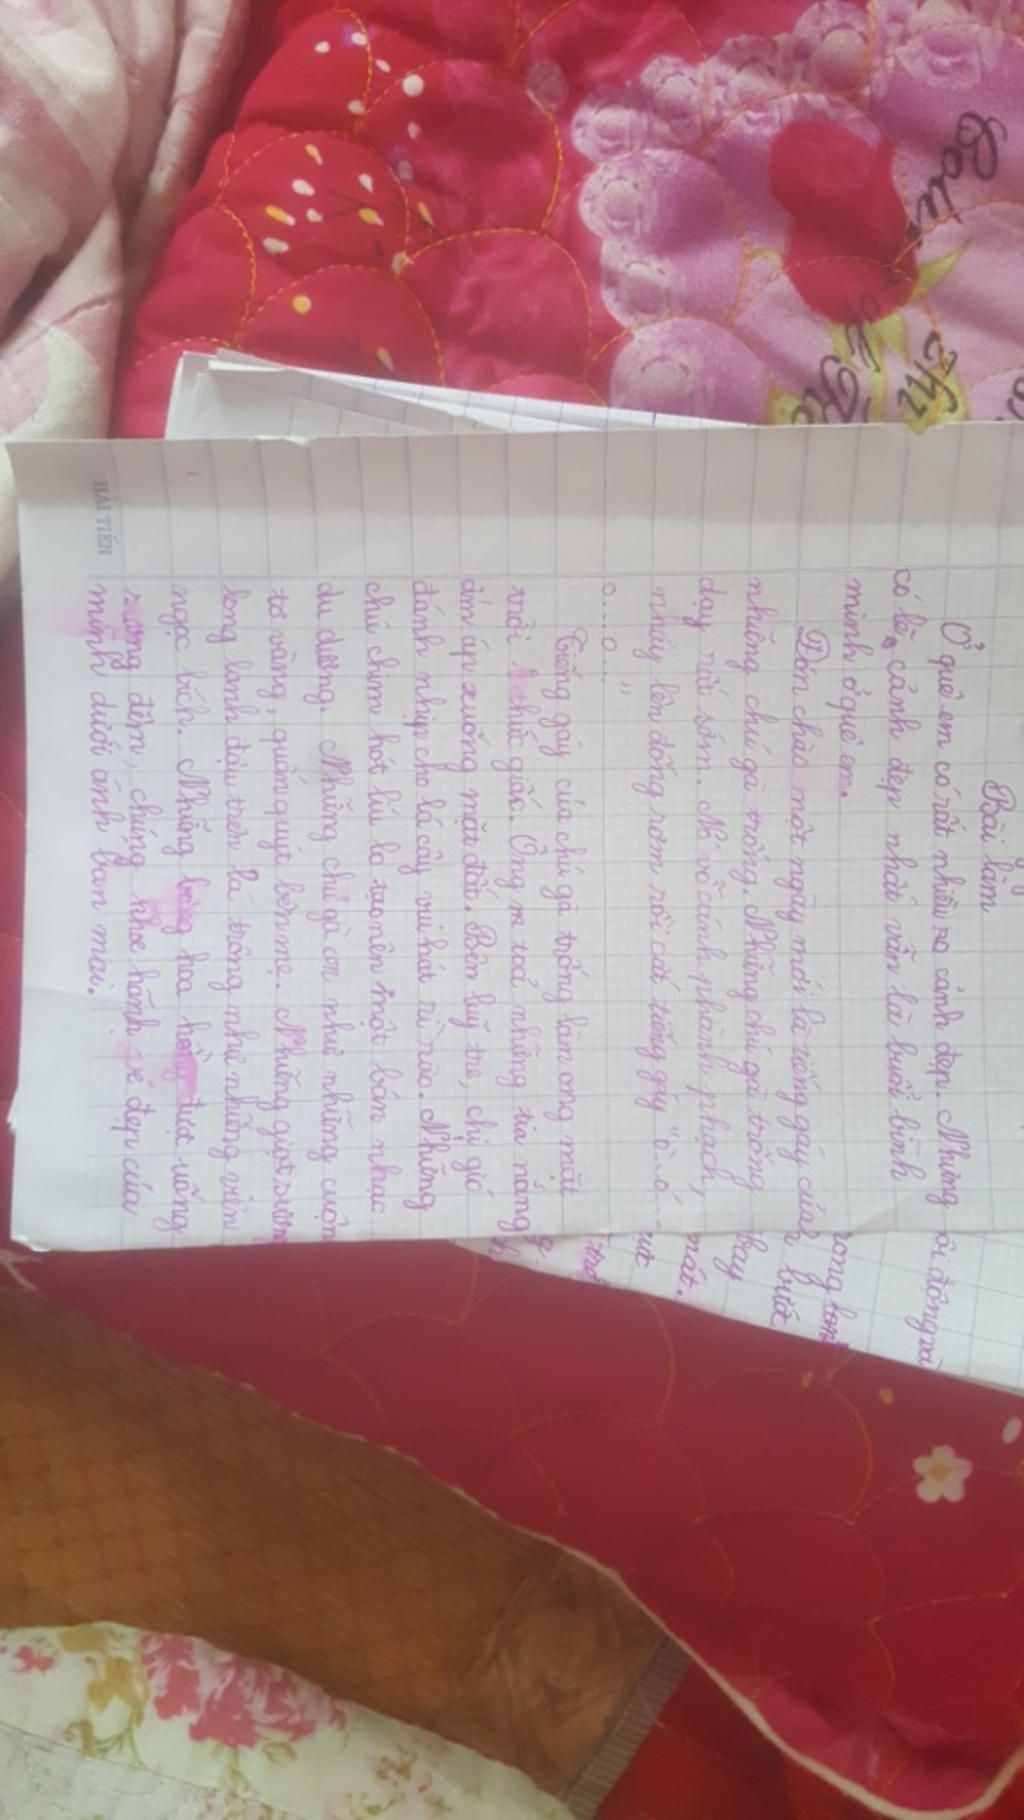 Bài làm
Ở quê em có rất nhiều cảnh đẹp. Nhưng
có lẽ cảnh đẹp nhất vẫn là buổi bình
minh ở quê em.
Đón chào một ngày mới là tiếng gáy của
những chú gà trống. Những chú gà trống
dạy rất sớm. Nó vỗ cánh phành phạch,
nhảy lên đống rơm rồi cất tiếng gáy "ò...ó...
o....o....
"
Tiếng gáy của chú gà trống làm ông mặt
trời thức giấc. Ông ta toả những tia nắng
ấm áp xuống mặt đất. Bên luỹ tre, chị gió
đánh nhịp cho lá cây vui hát rì rào. Những
chú chim hót líu lo tạo nên một bản nhạc
du dương. Những chú gà con như những cuộn
tơ vàng, quấn quýt bên mẹ. Những giọt sương
long lanh đậu trên lá trông như những viên
ngọc bích. Những bông hoa hồng được uống
sương đêm, chúng khoe hành vẻ đẹp của
mình dưới ánh ban mai.
HẢI TIẾN